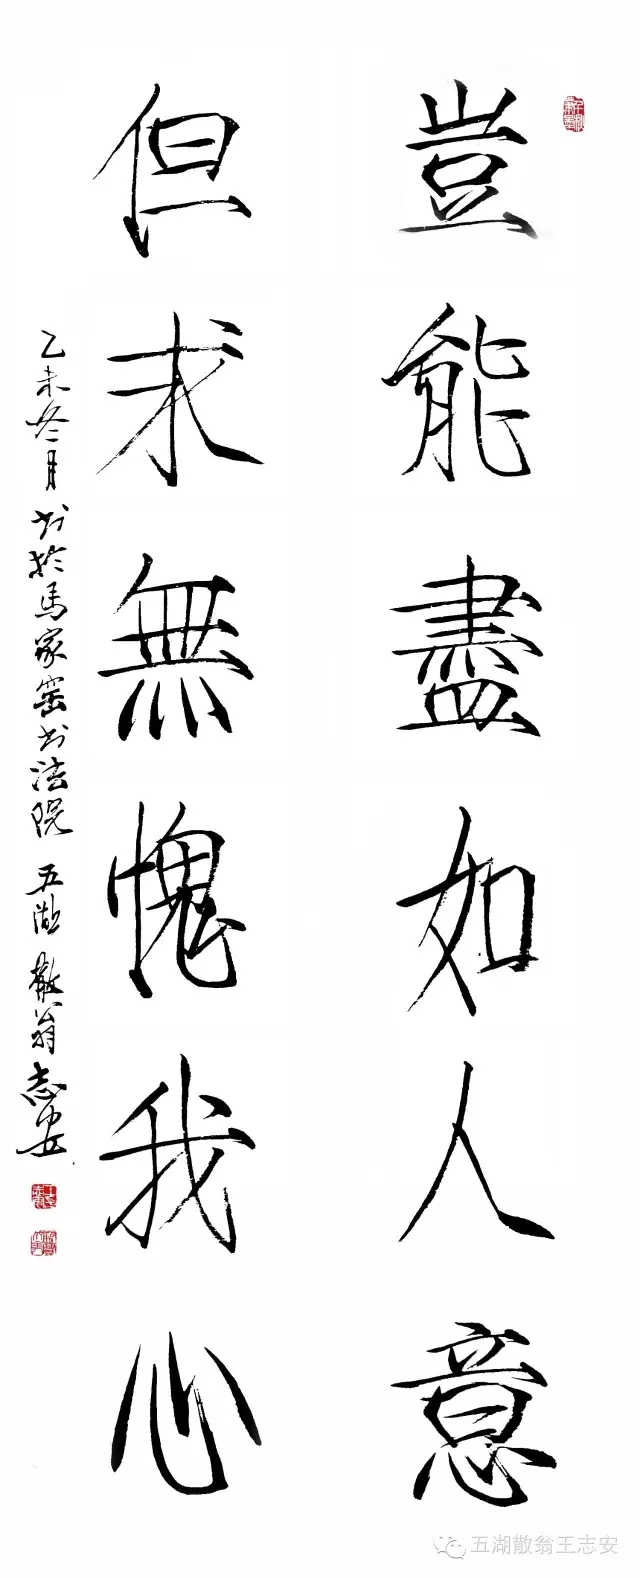 豈能盡如人意
但求無愧我心
乙未冬月书於馬家窑书法院五湖散翁志安
五湖散翁王志安